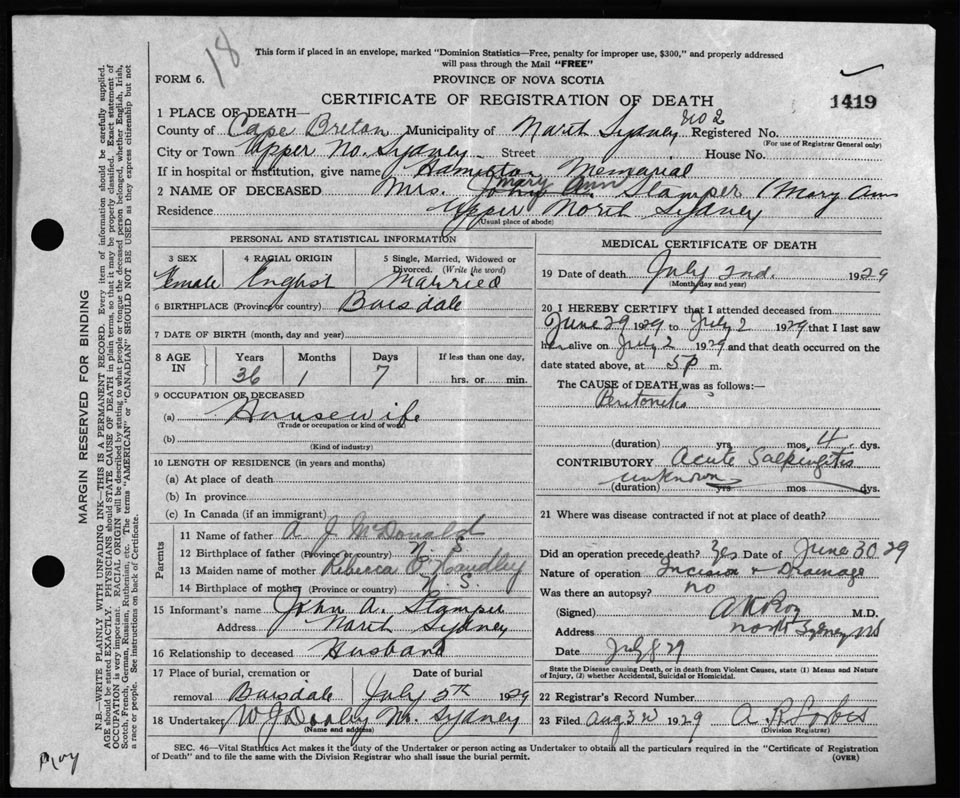 18
This form if placed in an envelope, marked "Dominion Statistics—Free, penalty for improper use, $300," and properly addressed
will pass through the Mail "FREE"
FORM 6.
PROVINCE OF NOVA SCOTIA
CERTIFICATE OF REGISTRATION OF DEATH
1419
1 PLACE OF DEATH—
County of Cape Breton Municipality of North Sydney No 2 Registered No.
(For use of Registrar General only)
City or Town Upper No. Sydney Street House No.
If in hospital or institution, give name Hamilton Memorial
2 NAME OF DECEASED Mrs. John A. Mary Ann Stamper (Mary Ann
Residence Upper North Sydney
(Usual place of abode)
PERSONAL AND STATISTICAL INFORMATION
3 SEX 4 RACIAL ORIGIN 5 Single, Married, Widowed or
Divorced. (Write the word)
Female English Married
6 BIRTHPLACE (Province or country) Boisdale
7 DATE OF BIRTH (month, day and year)
8 AGE IN Years Months Days If less than one day,
36 1 7 hrs. or min.
9 OCCUPATION OF DECEASED
(a) Housewife
(Trade or occupation or kind of work)
(b)
(Kind of industry)
10 LENGTH OF RESIDENCE (in years and months)
(a) At place of death
(b) In province
(c) In Canada (if an immigrant)
Parents
11 Name of father A. J. McDonald
12 Birthplace of father (Province or country) N S
13 Maiden name of mother Rebecca
14 Birthplace of mother (Province or country) N S
15 Informant's name John A. Stamper
Address North Sydney
16 Relationship to deceased Husband
17 Place of burial, cremation or Date of burial
removal Boisdale July 5th 1929
18 Undertaker W J Dooley No. Sydney
(Name and address)
MEDICAL CERTIFICATE OF DEATH
19 Date of death July 2nd. 1929
(Month, day and year)
20 I HEREBY CERTIFY that I attended deceased from
June 29 1929 to July 2 1929 that I last saw
her alive on July 2 1929 and that death occurred on the
date stated above, at 5 P m.
The CAUSE of DEATH was as follows:—
Peritonitis
(duration) yrs. mos. 4 dys.
CONTRIBUTORY Acute Salpingitis
unknown
(duration) yrs mos dys.
21 Where was disease contracted if not at place of death?
Did an operation precede death? Yes Date of June 30 29
Nature of operation Incision & Drainage
Was there an autopsy? no
(Signed) M.D.
Address North Sydney NS
Date July 8 29
State the Disease causing Death, or in death from Violent Causes, state (1) Means and Nature
of Injury, (2) whether Accidental, Suicidal or Homicidal.
22 Registrar's Record Number
23 Filed Aug 3rd 1929 A R Forbes
(Division Registrar)
SEC. 46—Vital Statistics Act makes it the duty of the Undertaker or person acting as Undertaker to obtain all the particulars required in the "Certificate of Registration
of Death" and to file the same with the Division Registrar who shall issue the burial permit.
(OVER)
MARGIN RESERVED FOR BINDING
N.B.—WRITE PLAINLY, WITH UNFADING INK—THIS IS A PERMANENT RECORD. Every item of information should be carefully supplied.
AGE should be stated EXACTLY. PHYSICIANS should STATE CAUSE OF DEATH in plain terms, so that it may be properly classified. Exact statement of
OCCUPATION is very important. RACIAL ORIGIN will be described by stating to what people or tongue the deceased person belonged, whether English, Irish,
Scotch, French, German, Russian, Ruthenian, etc. The terms "AMERICAN" or "CANADIAN" SHOULD NOT BE USED as they express citizenship but not
a race or people. See instructions on back of Certificate.